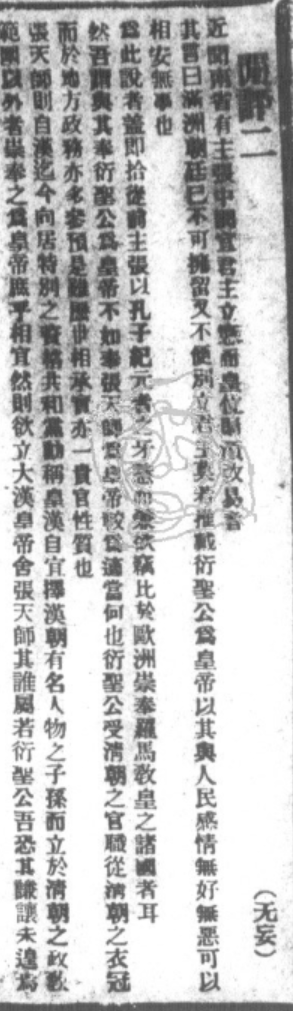 閒評二
近聞南省有主張中國宜君主立憲而皇位則須改易者
其言曰滿洲朝廷已不可擁留又不便別立君主莫若推戴衍聖公爲皇帝以其與人民感情無好無惡可以
相安無事也
爲此說者蓋即拾從前主張以孔子紀元者之牙慧而兼欲竊比於歐洲崇奉羅馬敎皇之諸國者耳
然吾謂與其奉衍聖公爲皇帝不如奉張天師爲皇帝較爲適當何也衍聖公受清朝之官職從清朝之衣冠
而於地方政務亦多參預是雖歷世相承實亦一貴官性質也
張天師則自漢迄今向居特別之資格共和黨動稱皇漢自宜擇漢朝有名人物之子孫而立於清朝之政敎
範圍以外者崇奉之爲皇帝庶乎相宜然則欲立大漢皇帝舍張天師其誰屬若衍聖公吾恐其謙讓未遑焉
（无妄）